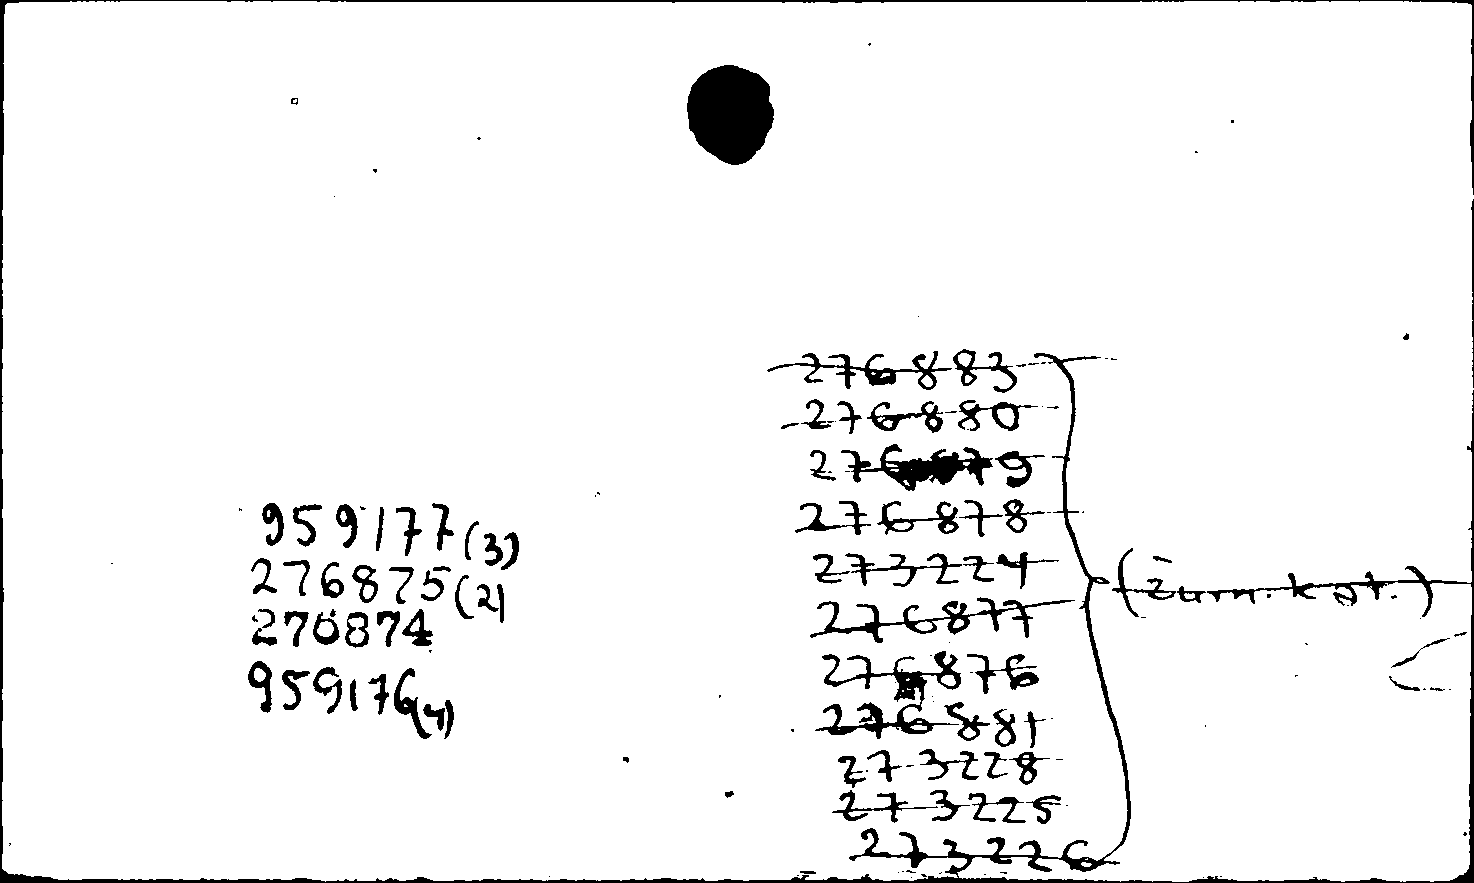 959177(3)
276875(2)
276874
959176(4)
276883
276880
276879
276878
273224
276877
276876
276881
273228
273225
273226
(žurn. kat.)